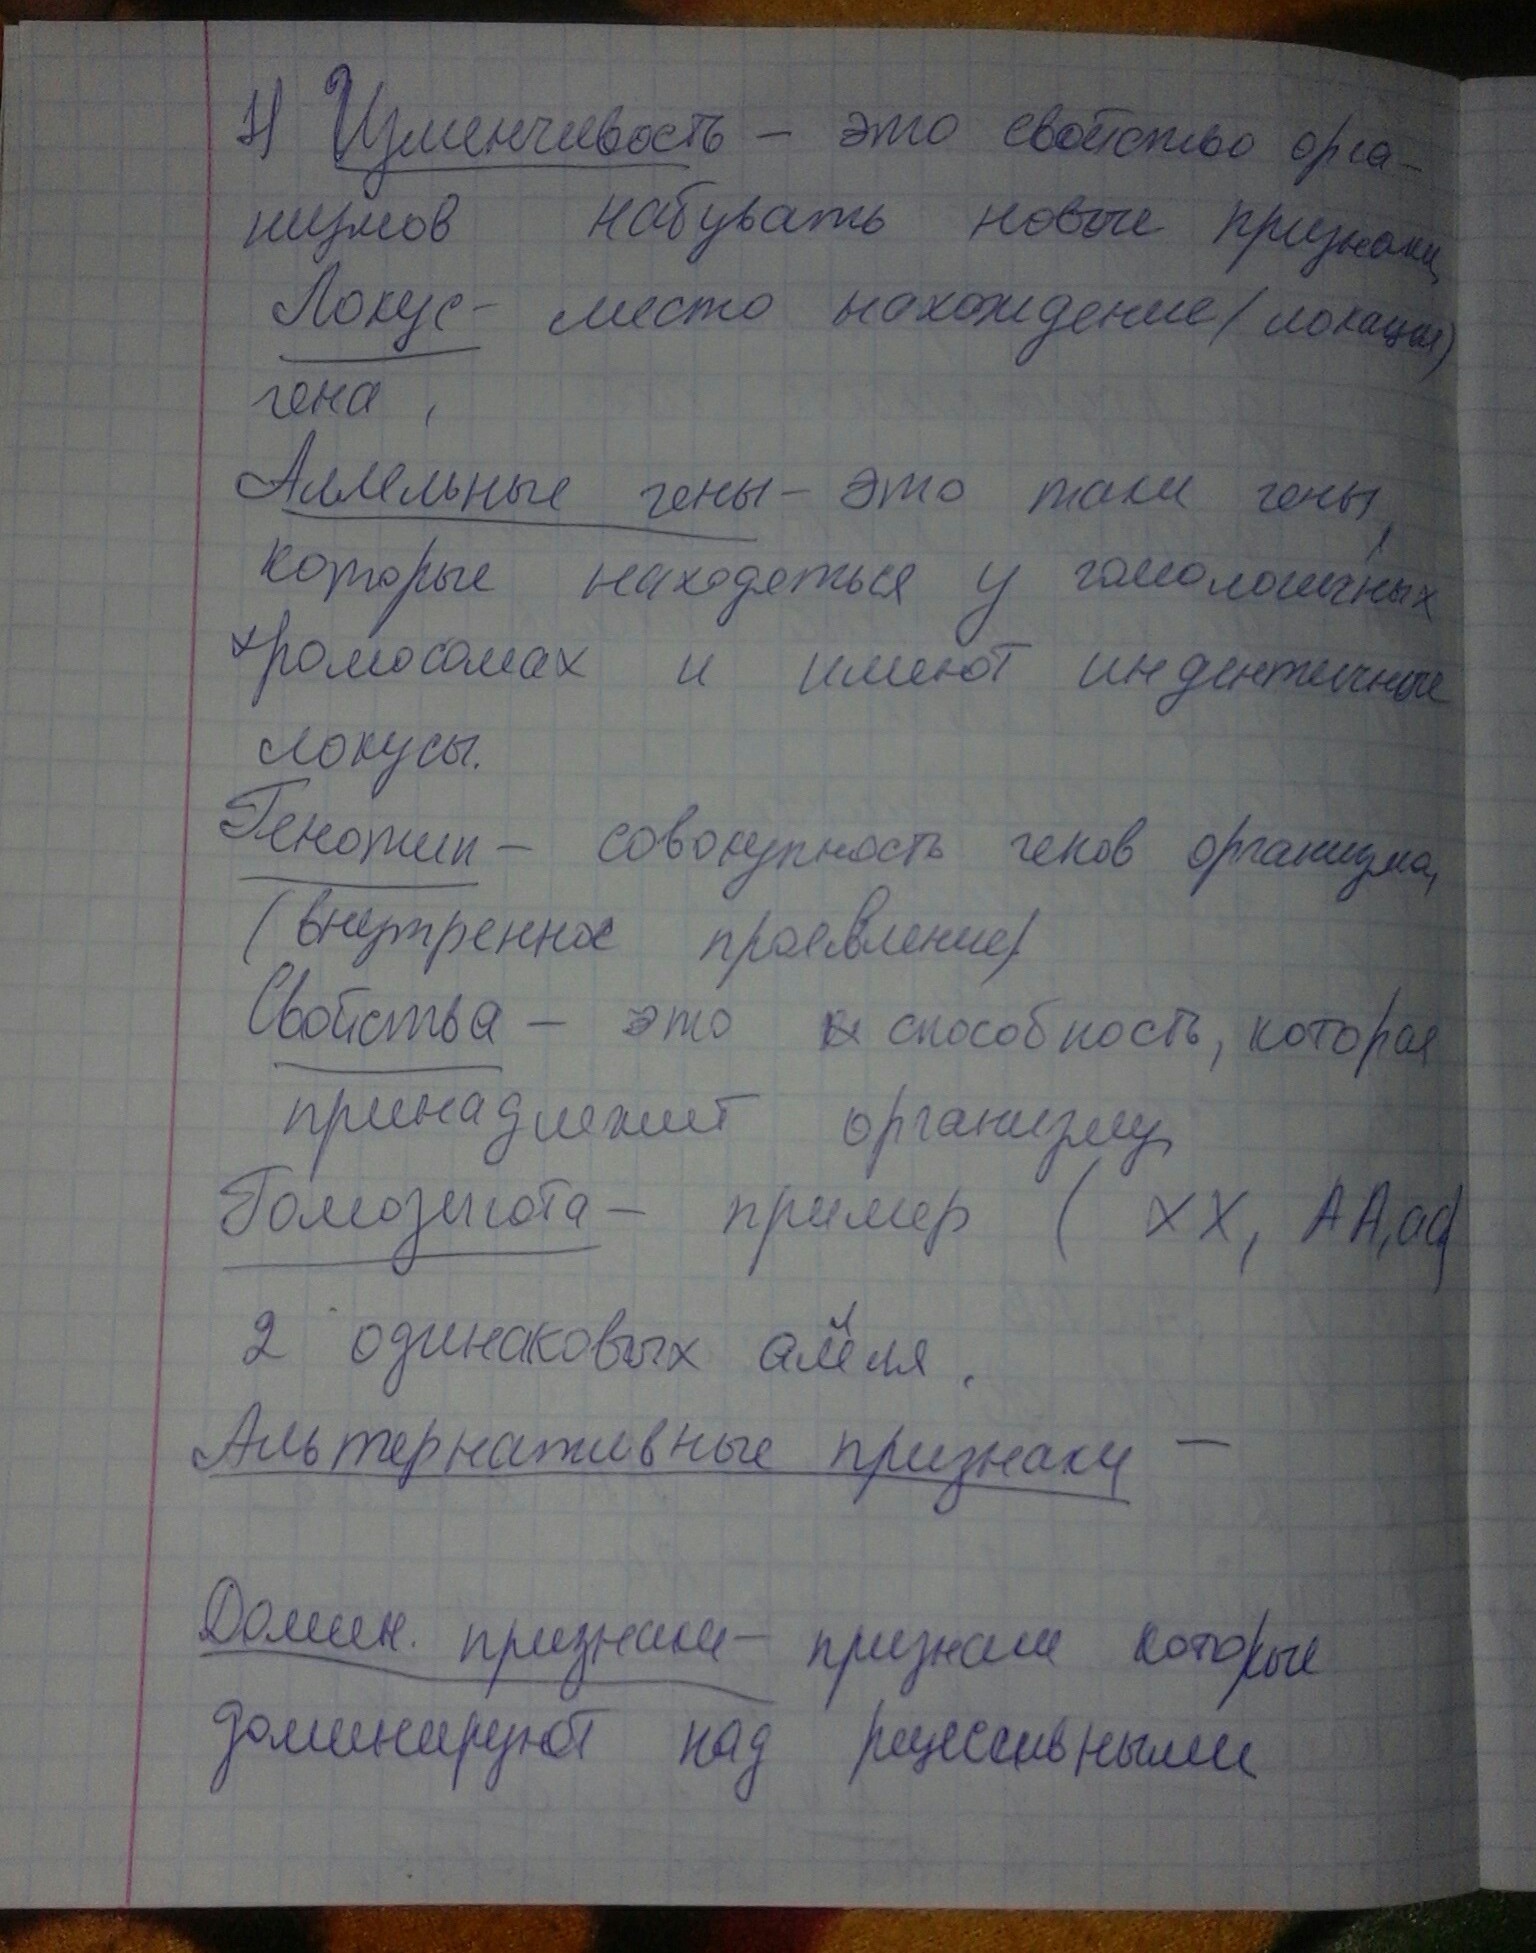 1) Изменчивость – это свойство орга-
низмов набувать новые признаки
Локус – место нахождение (локация)
гена,
Аллельные гены – это таки гены,
которые находяться у гомологичных
хромосомах и имеют индентичные
локусы.
Генотип – совокупность генов организма,
(внутренное проявление)
Свойства – это способность, которая
принадлежит организму
Гомозигота – пример ( XX, AA, aa)
2 одинаковых алеля.
Альтернативные признаки –
Домин. признаки – признаки которые
доминируют над рецессивными